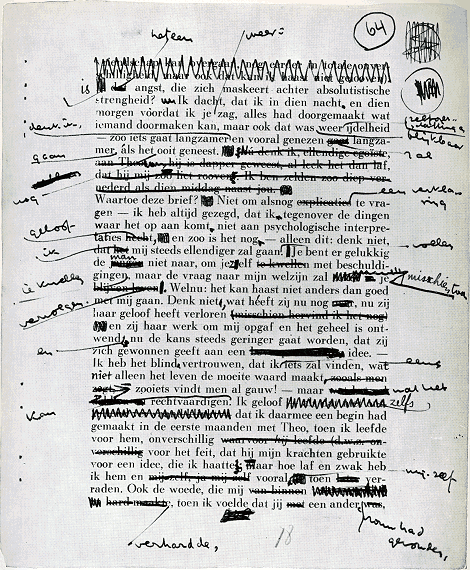 heteen weer:
64
is de angst, die zich maskeert achter absolutistische
strengheid? Ik dacht, dat ik in dien nacht, en dien
morgen vóórdat ik je zag, alles had doorgemaakt wat
iemand doormaken kan, maar ook dat was weer ijdelheid
— zoo iets gaat langzamer en vooral genezen gaat langza-
mer, als het ooit geneest. denk ik, ellendige egoïste,
aan Theo, hij is dapper geweest, al leek het dan laf,
dat hij mij zoo het roover. Ik ben zelden zoo diep ver-
nederd als dien middag naast jou.
Waartoe deze brief? Niet om alsnog explicatief te vra-
gen — ik heb altijd gezegd, dat ik, tegenover de dingen
waar het op aan komt, niet aan psychologische interpre-
taties hecht, en zoo is het nog, — alleen dit: denk niet,
dat het mij steeds ellendiger zal gaan! Je bent er gelukkig
de man niet naar, om je zelf te kwellen met beschuldi-
gingen, maar de vraag naar mijn welzijn zal je
blijven Welnu: het kan haast niet anders dan goed
met mij gaan. Denk niet, wat heeft zij nu nog nu zij
haar geloof heeft verloren (misschien hervind ik het nog)
en zij haar werk om mij opgaf en het geheel is ont-
wend, nu de kans steeds geringer gaat worden, dat zij
zich gewonnen geeft aan een idee. —
Ik heb het blind vertrouwen, dat ik iets zal vinden, wat
niet alleen het leven de moeite waard maakt, zooals men
zegt, zooiets vindt men al gauw! — maar wat het
rechtvaardigen. Ik geloof zelfs,
dat ik daarmee een begin had
gemaakt in de eerste maanden met Theo, toen ik leefde
voor hem, onverschillig waarvoor hij leefde (d.w.z. on-
verschillig voor het feit, dat hij mijn krachten gebruikte
voor een idee, die ik haatte), maar hoe laf en zwak heb
ik hem en mij zelf, ja mij zelf vooral toen ver-
raden. Ook de woede, die mij van binnen
hard maakte, toen ik voelde dat jij met een ander was,
denk ik,
gaan
nog
geloof
ik
je kwellen
vervolgen.
en
kan
blijkbaar
zal
een verkla-
ring
wellen
misschien, toe
eens
wat het
mij zelf
verhardde,
vrouw had
gevonden,
18